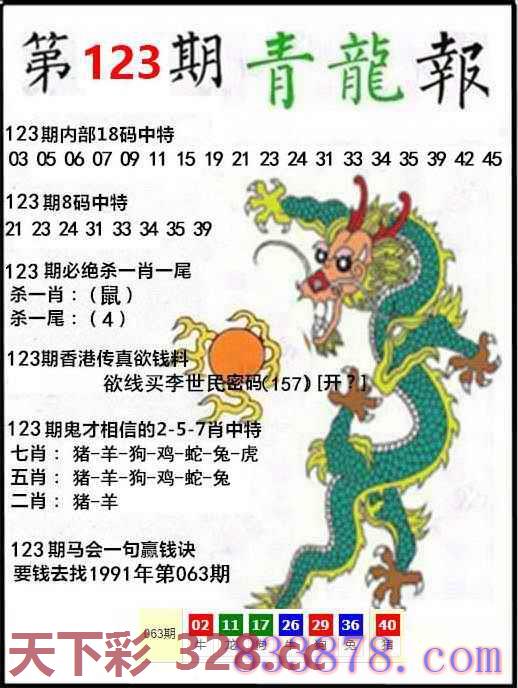 第123期青龍報
123期内部18码中特
03 05 06 07 09 11 15 19 21 23 24 31 33 34 35 39 42 45
123期8码中特
21 23 24 31 33 34 35 39
123期必绝杀一肖一尾
杀一肖：（鼠）
杀一尾：（4）
123期香港传真欲钱料
欲线买李世民密码(157)[开?]
123期鬼才相信的2-5-7肖中特
七肖：猪-羊-狗-鸡-蛇-兔-虎
五肖：猪-羊-狗-鸡-蛇-兔
二肖：猪-羊
123期马会一句赢钱诀
要钱去找1991年第063期
063期 02 11 17 26 29 36 40
牛 龙 狗 牛 狗 兔 猪
天下彩 328.cc
833878.com